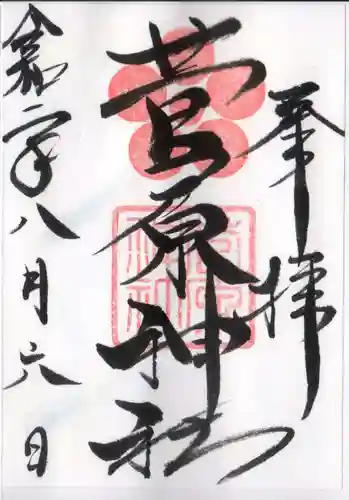 奉拝
菅原神社
令和二年八月六日